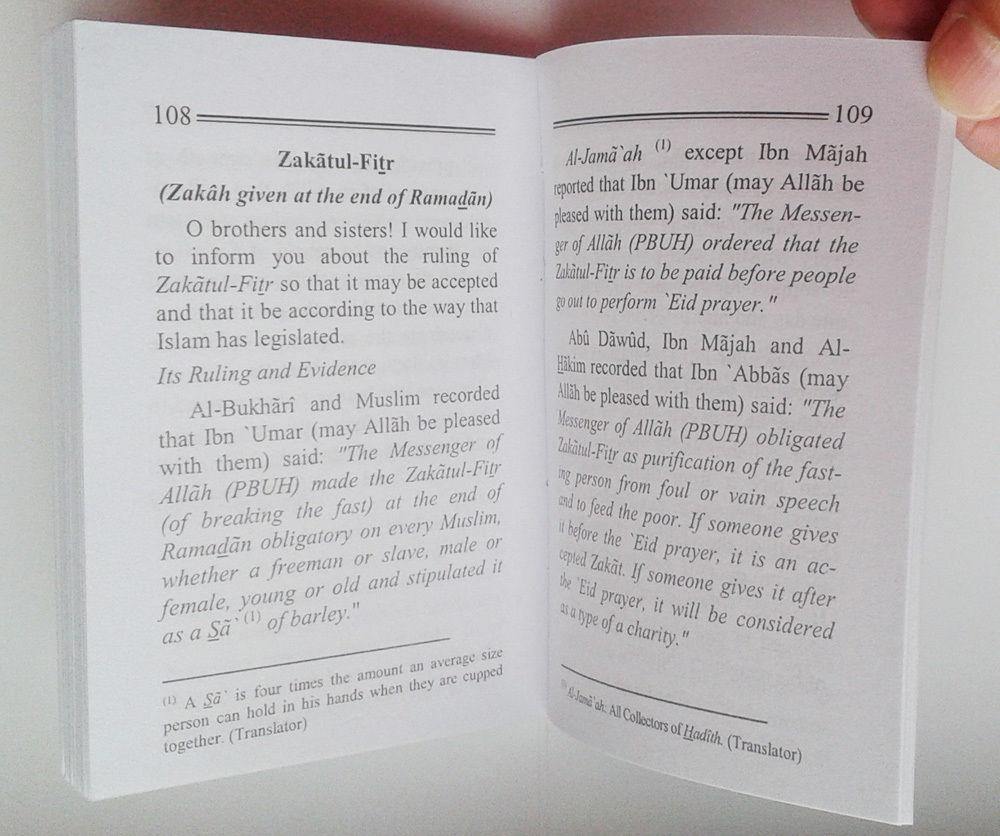 108
Zakãtul-Fiṯr
(Zakâh given at the end of Ramaḏãn)
O brothers and sisters! I would like
to inform you about the ruling of
Zakãtul-Fiṯr so that it may be accepted
and that it be according to the way that
Islam has legislated.
Its Ruling and Evidence
Al-Bukhãrî and Muslim recorded
that Ibn `Umar (may Allãh be pleased
with them) said: "The Messenger of
Allãh (PBUH) made the Zakãtul-Fiṯr
(of breaking the fast) at the end of
Ramaḏãn obligatory on every Muslim,
whether a freeman or slave, male or
female, young or old and stipulated it
as a S̱ã` (1) of barley."
(1) A S̱ã` is four times the amount an average size
person can hold in his hands when they are cupped
together. (Translator)
109
Al-Jamã`ah (1) except Ibn Mãjah
reported that Ibn `Umar (may Allãh be
pleased with them) said: "The Messen-
ger of Allãh (PBUH) ordered that the
Zakãtul-Fiṯr is to be paid before people
go out to perform `Eid prayer."
Abû Dãwûd, Ibn Mãjah and Al-
H̱ãkim recorded that Ibn `Abbãs (may
Allãh be pleased with them) said: "The
Messenger of Allãh (PBUH) obligated
Zakãtul-Fiṯr as purification of the fast-
ing person from foul or vain speech
and to feed the poor. If someone gives
it before the `Eid prayer, it is an ac-
cepted Zakãt. If someone gives it after
the `Eid prayer, it will be considered
as a type of a charity."
(1) Al-Jamã`ah: All Collectors of H̱adîth. (Translator)